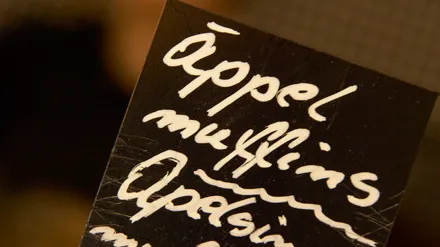 äppel
muffins
Apelsin